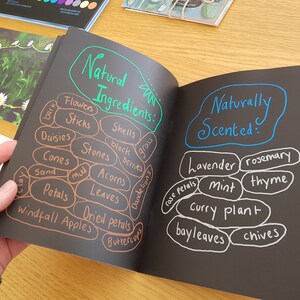 Natural
Ingredients:
Flowers
Sticks
Shells
Daisies
Stones
black
berries
Grass
Cones
Sand
mud
Acorns
Clay
Petals
Leaves
Dandelions
Windfall Apples
Dried petals
Buttercups
Naturally
Scented:
Lavender
rosemary
rose petals
Mint
thyme
curry plant
bayleaves
chives